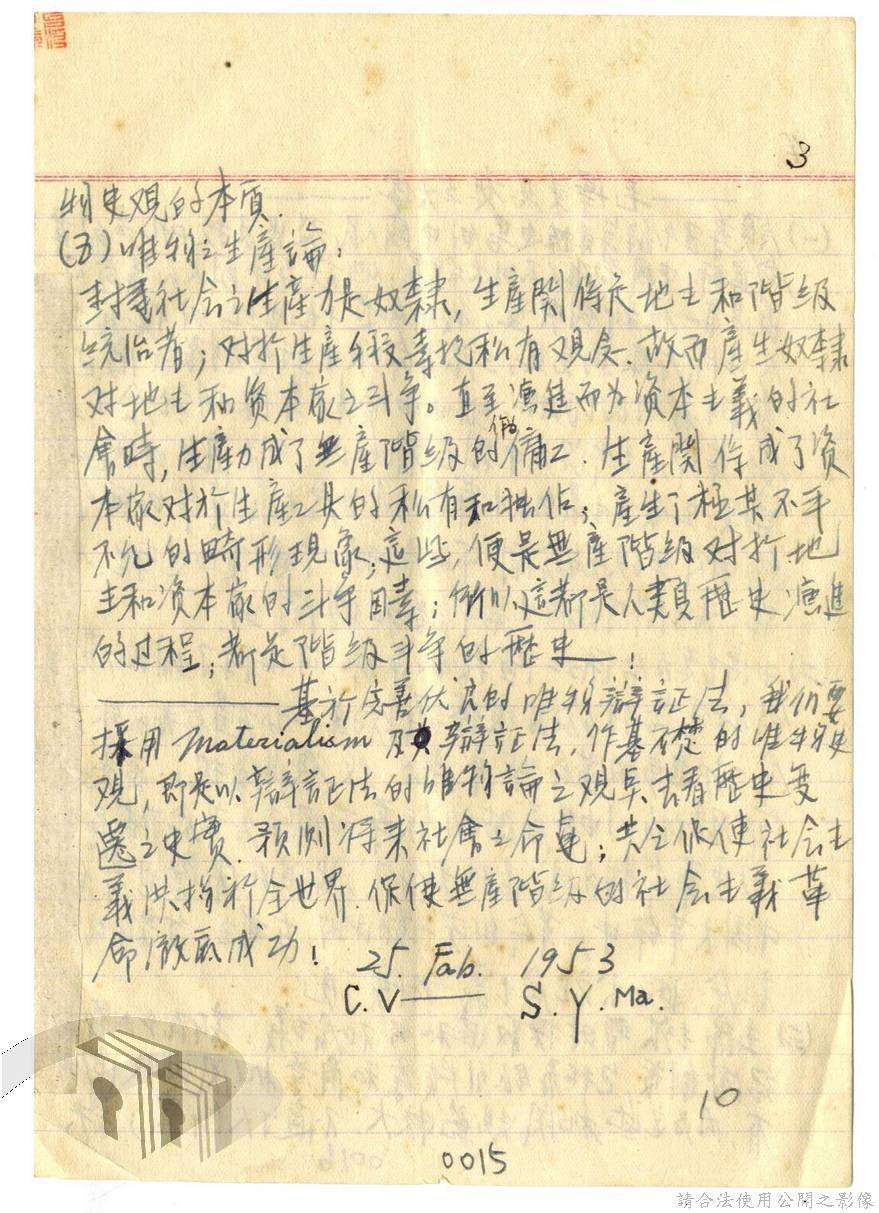 3
物史观的本質.
(五)唯物之生產論:
封建社会之生產力是奴隸,生產関係是地主和階級
統治者;对於生產手段毒 私有观念.故而產生奴隸
对地主和资本家之斗争。直至演進而为资本主義的社
會時,生產力成了無產階級的作为傭工.生產関係成了资
本家对於生產工具的私有和独佔;產生了極其不平
不允的畸形現象;這些,便是無產階級对於地
主和资本家的斗争因素;所以這都是人類歷史演進
的过程;都是階級斗争的歷史——!
————基於完善优良的唯物辯証法,我们要
採用 Materialism 及 辯証法,作基礎的唯物史
观,即是以辯証法的唯物論之观点去看歷史变
遷之史實.預測将来社會之命運;共令 使社会主
義洪揚於全世界.保使無產階级的社会主義革
命澈底成功!
25. Fab. 1953
C.V—— S.Y.Ma.
10
0015
請合法使用公開之影像